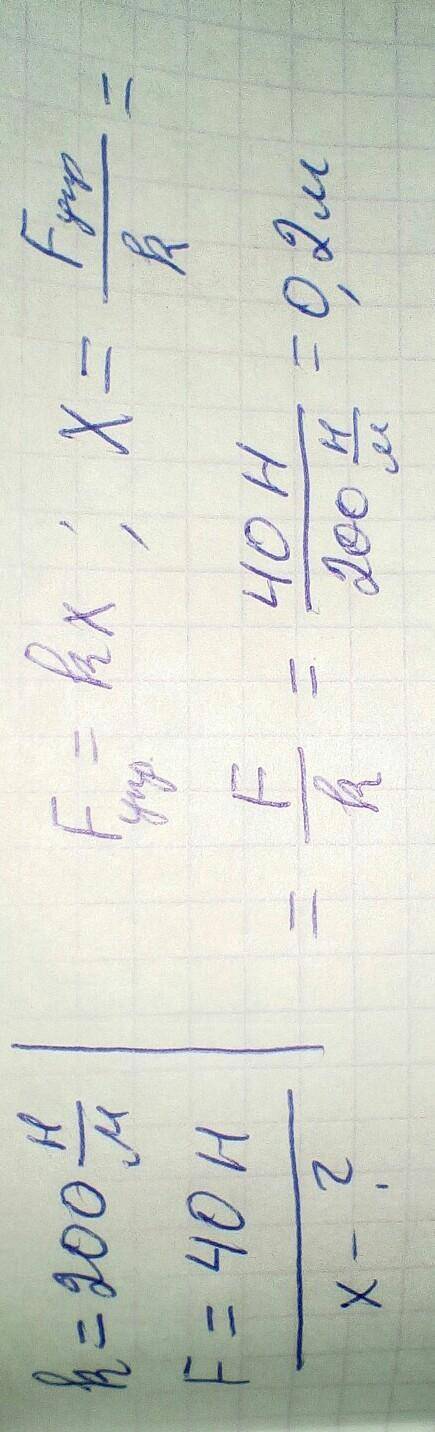 k = 200 Н/м
F = 40 Н
x - ?
Fупр = kx ; x = Fупр/k =
= F/k = 40 Н/200 Н/м = 0,2 м